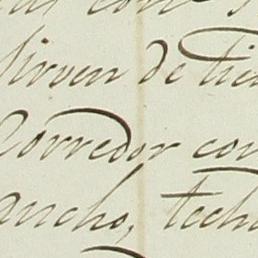 con
sirven de
Corredor con
ancho, tech